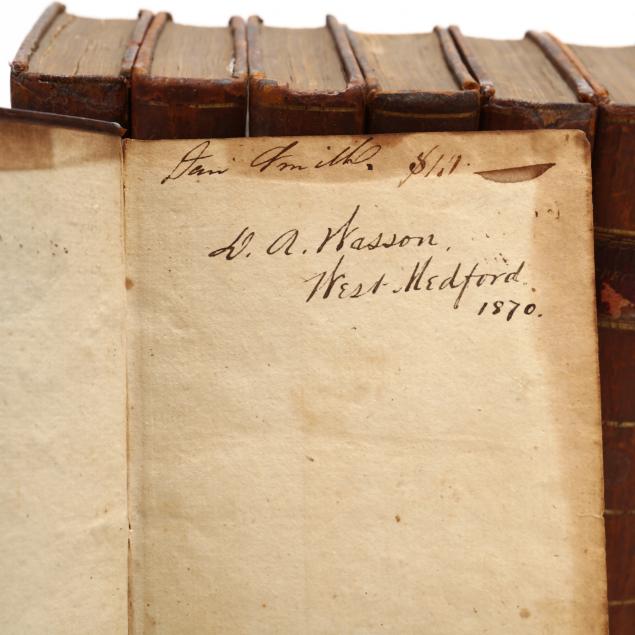 Dan Smith.
D. A. Wasson.
West Medford.
1870.